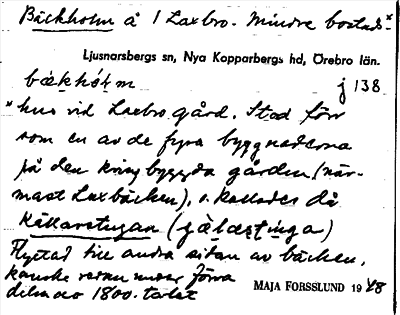 Bäckholm å 1 Laxbro. Mindre bostads-*
Ljusnarsbergs sn, Nya Kopparbergs hd, Örebro län.
bäkhóɫm j 138
*hus vid Laxbro gård. Stod förr
som en av de fyra byggnaderna
på den kringbyggda gården (när-
mast Laxbäcken), o. kallades då
Källarstugan
Flyttad till andra sidan av bäcken,
kanske redan under förra
delen av 1800-talet
MAJA FORSSLUND 1948